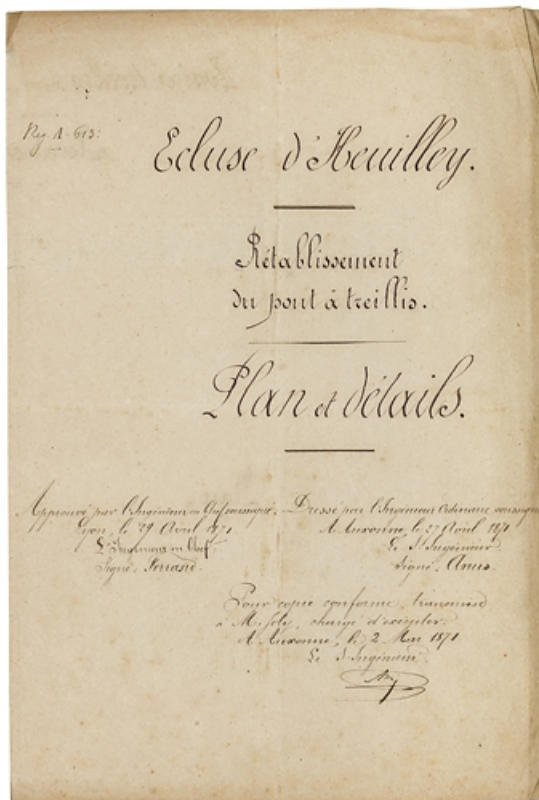 Reg. A-613:
Ecluse d'Heuilley.
Rétablissement
du pont à treillis.
Plan et détails.
Approuvé par l'Ingénieur en Chef soussigné.
Lyon, le 29 Avril 1871
L'Ingénieur en Chef.
Signé.
Dressé par l'Ingénieur Ordinaire soussigné
A Auxonne, le 27 Avril 1871
Le S. Ingénieur
Signé.
Pour copie conforme, transmise
à M. chargé d'exécuter.
A Auxonne, le 2 Mai 1871
Le S. Ingénieur